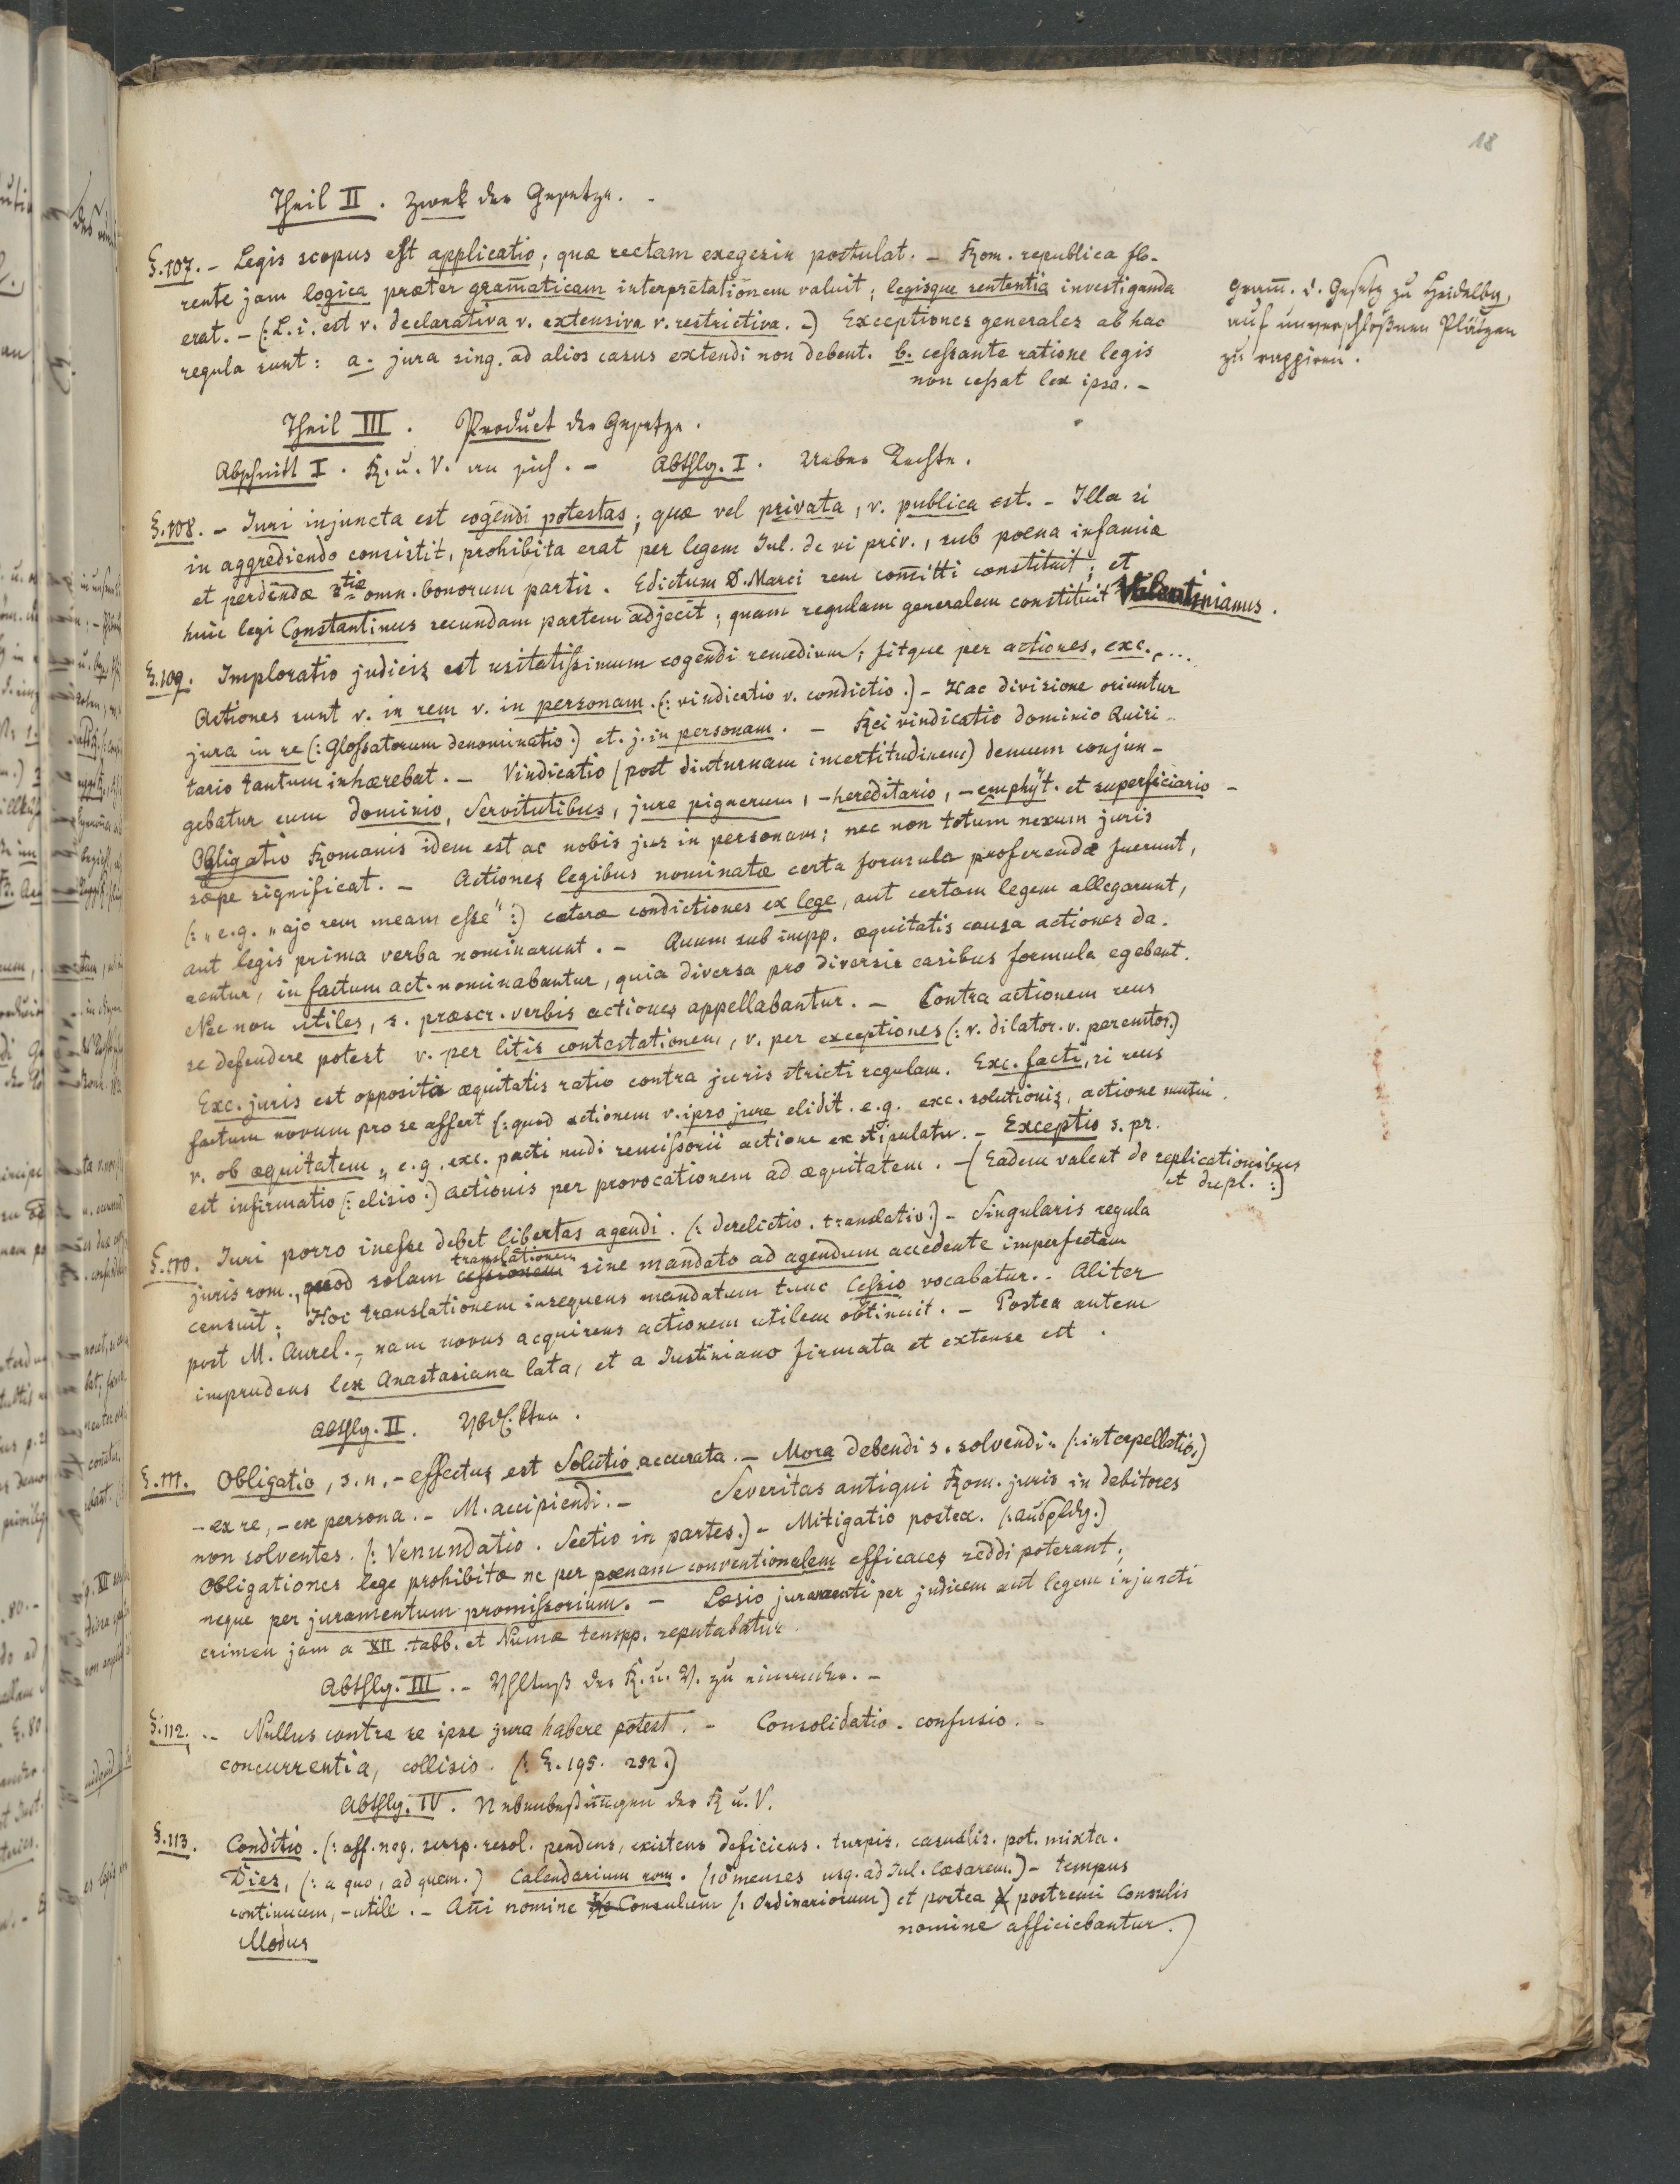 18
Theil II. Zwek der Gesetze. -
§.107. - Legis scopus est applicatio; quæ rectam exegesin postulat. - Rom. republica flo-
rente jam logica præter gram̅aticam interpretationem valuit; legisque sententia investiganda
erat. - (: L. i. est v. declarativa v. extensiva v. restrictiva. -) Exceptiones generales ab hac
regula sunt: a. jura sing. ad alios casus extendi non debent. b. cessante ratione legis
non cessat lex ipsa. -
Gram̅. d. Gesetz zu Heidelberg,
auf unverschloßnen Plätzen
zu rappiren.
Theil III. Product der Gesetze.
Abschnitt I. R. u. V. an sich. - Abthlg. I. Ueber Rechte.
§.108. - Iuri injuncta est cogendi potestas; quæ vel privata, v. publica est. - Illa si
in aggrediendo consistit, prohibita erat per legem Jul. de vi priv., sub poena infamiæ
et perdendæ 3tiæ omn. bonorum partis. Edictum D. Marci rem com̅itti constituit; et
huic legi Constantinus secundam partem adjecit; quam regulam generalem constituit Valentinianus.
§.109. Imploratio judicis est usitatissimum cogendi remedium; fitque per actiones, exc., ...
Actiones sunt v. in rem v. in personam. (: vindicatio v. condictio.) - Hac divisione oriuntur
jura in re (: Glossatorum denominatio.) et. j. in personam. - Rei vindicatio dominio Quiri-
tario tantum inhærebat. - Vindicatio (post diuturnam incertitudinem) demum conjun-
gebatur cum dominio, Servitutibus, jure pignerum, - hereditario, - emphyt. et superficiario -
Obligatio Romanis idem est ac nobis jus in personam; nec non totum nexum juris
sæpe significat. - Actiones legibus nominatæ certa formula proferendæ fuerunt,
(: „e.g. „ajo rem meam esse“ :) cæteræ condictiones ex lege, aut certam legem allegarunt,
aut legis prima verba nominarunt. - Quum sub impp. æquitatis causa actiones da-
rentur, in factum act. nominabantur, quia diversa pro diversis casibus formula egebant.
Nec non utiles, s. præscr. verbis actiones appellabantur. - Contra actionem reus
se defendere potest v. per litis contestationem, v. per exceptiones (: v. dilator. v. peremtor.)
Exc. juris est opposita æquitatis ratio contra juris stricti regulam. Exc. facti, si reus
factum novum pro se affert (: quod actionem v. ipso jure elidit. e.g. exc. solutionis, actione mutui.
v. ob æquitatem „ e.g. exc. pacti nudi remissorii actione ex stipulatu. - Exceptio s. pr.
est infirmatio (: elisio :) actionis per provocationem ad æquitatem. - (Eadem valent de replicationibus
et dupl. :)
§.110. Iuri porro inesse debet libertas agendi. (: derelictio. translatio.) - Singularis regula
juris rom., quod solam cessionem translationem sine mandato ad agendum accedente imperfectam
censuit; Hoc translationem insequens mandatum tunc Cessio vocabatur. - Aliter
post M. Aurel. -, nam novus acquirens actionem utilem obtinuit. - Postea autem
imprudens lex Anastasiana lata, et a Iustiniano firmata et extensa est.
Abthlg. II.
§.111. Obligatio, s. n. - effectus est Solutio accurata. - Mora debendi s. solvendi. (: interpellatio,)
- ex re, - ex persona. - M. accipiendi. - Severitas antiqui Rom. juris in debitores
non solventes. (: Venundatio. Sectio in partes.) - Mitigatio postea.
Obligationes lege prohibitæ ne per pœnam conventionalem efficaces reddi poterant,
neque per juramentum promissorium. - Læsio juramenti per judicem aut legem injuncti
crimen jam a XII tabb. et Numæ tempp. reputabatur.
Abthlg. III. - Vhltniß der R. u. V. zu einander. -
§.112. - Nullus contra se ipse jura habere potest. - Consolidatio. confusio. -
concurrentia, collisio. (: §. 195. 292.)
Abthlg. IV. Nebenbestim̅ungen der R u. V.
§.113. Conditio. (: aff. neg. susp. resol. pendens, existens deficiens. turpis. casualis. pot. mixta.
Dies, (: a quo, ad quem.) Calendarium rom. (10 menses usq. ad Jul. Cæsarem.) - tempus
continuum, - utile. - An̅i nomine Consulum (: Ordinariorum) et postea postremi Consulis
nomine afficiebantur.)
Modus